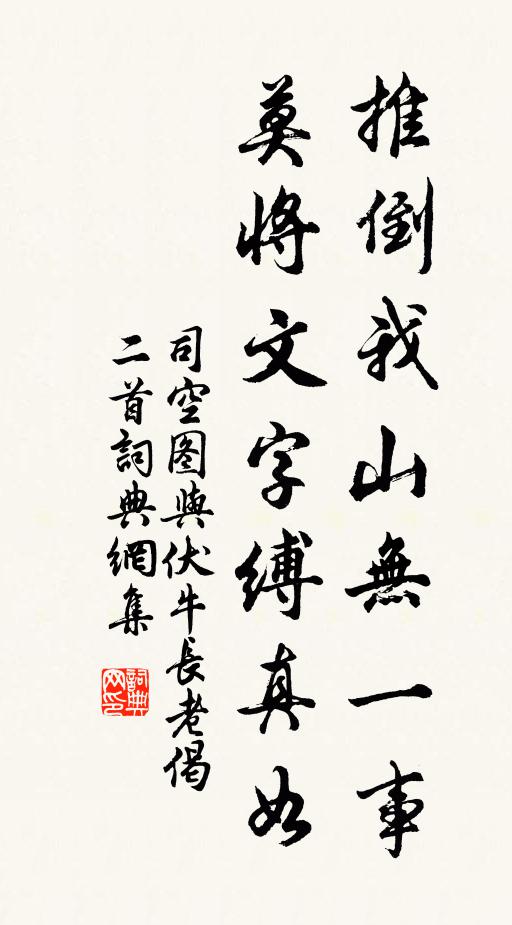 推倒我山無一事
莫將文字縛真如
司空图與伏牛長老偈
二首詞典網集
詞典网印